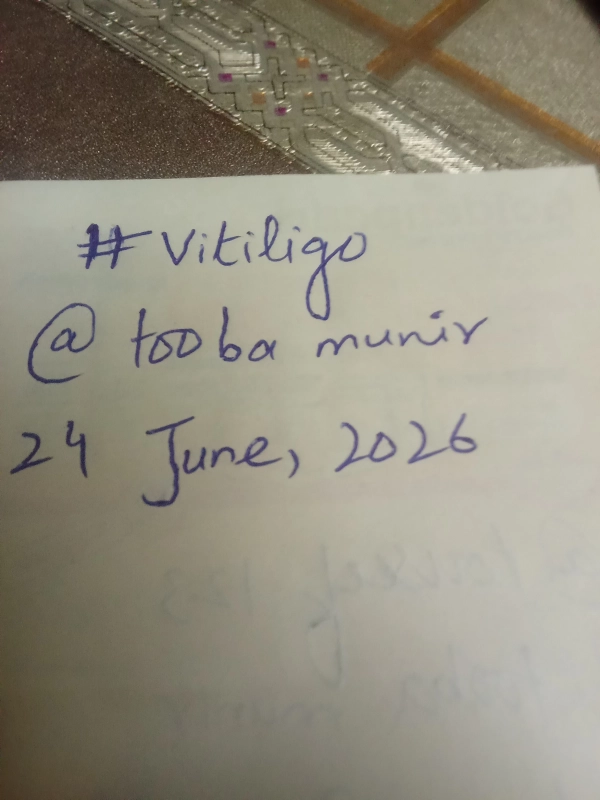 #vitiligo
@tooba munir
24 June, 2026